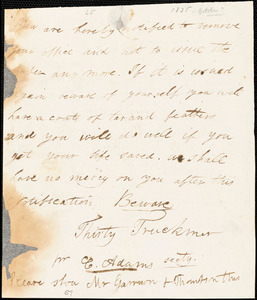 1835. October?
You are hereby notified to remove
your office and not to issue the
any more. If it is issued
again beware of yourself you will
have a coats of tar and feathers
and you will do well if you
got your life saved. we shall
have no mercy on you after this
notification Beware
Thirty Truckmen
pr E. Adams secty.
Mr Garrison & Thomson this